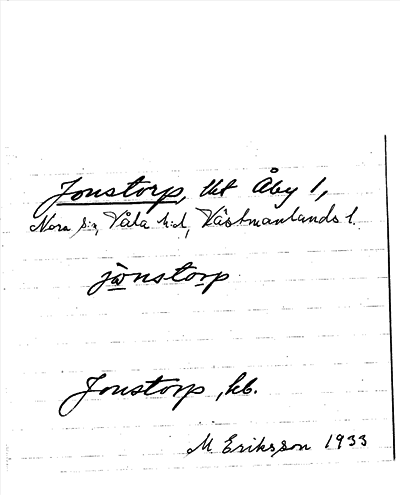 Jonstorp, tht Åby 1,
Nora s:n, Våla h:d, Västmanlands l.
jònstorp
Jonstorp, kb.
M. Eriksson 1933